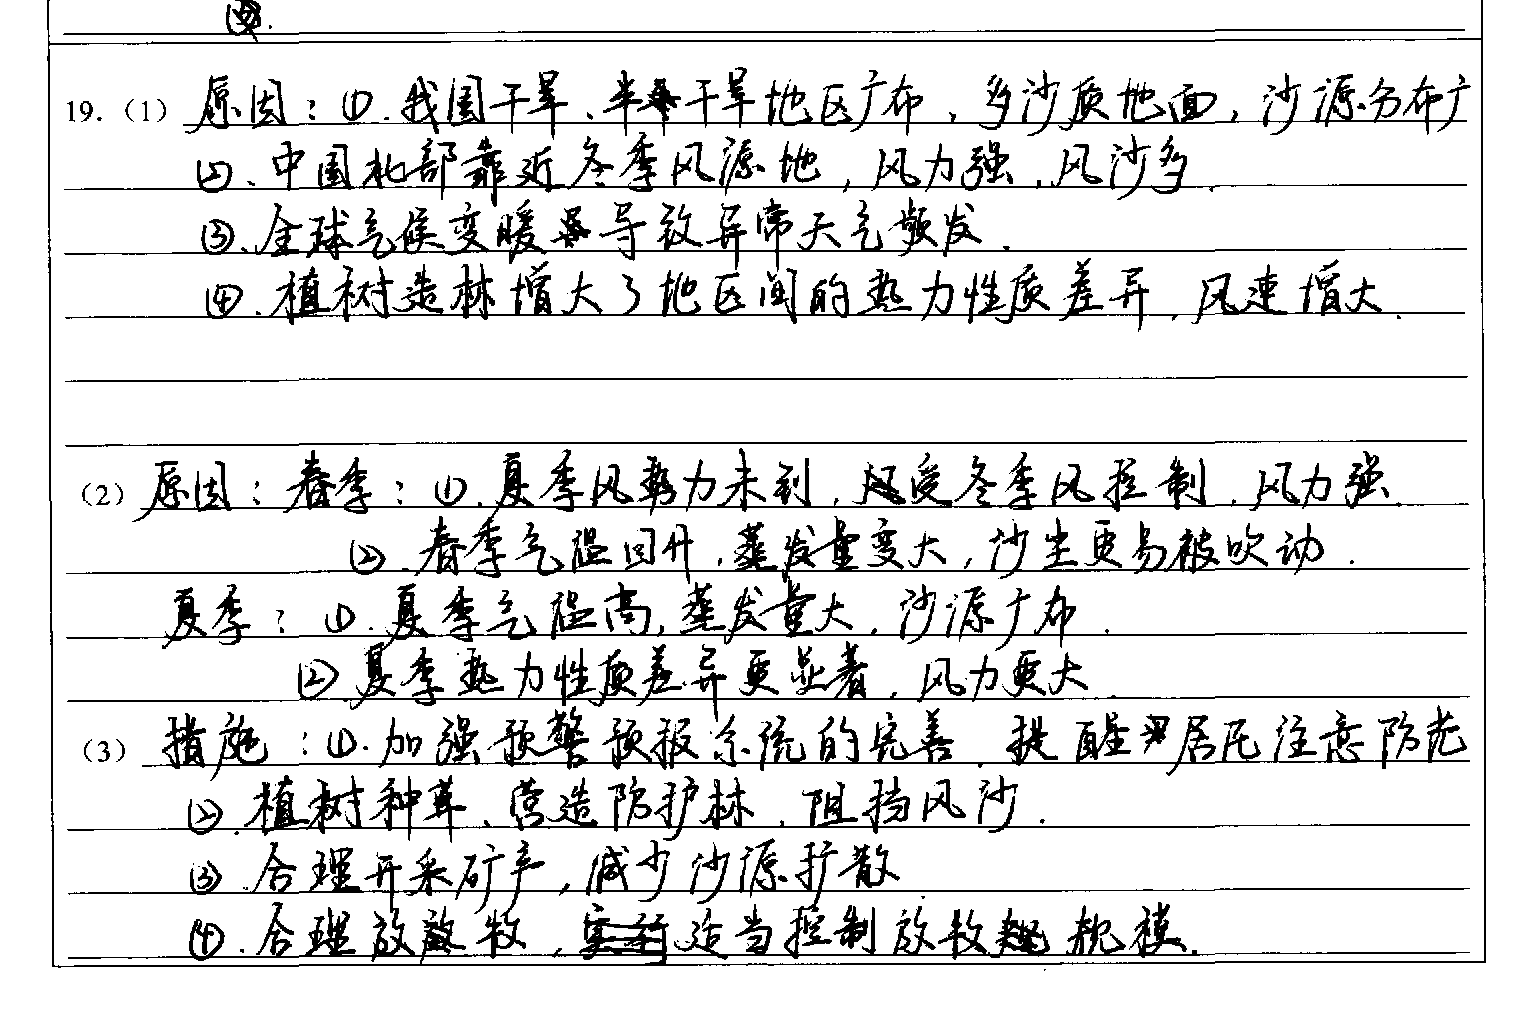 ④.
19.（1）原因：①.我国干旱、半干旱地区广布，多沙质地面，沙源分布广
②、中国北部靠近冬季风源地，风力强，风沙多.
③、全球气候变暖导致异常天气频发.
④.植树造林增大了地区间的热力性质差异，风速增大.
（2）原因：春季：①.夏季风势力未到，受冬季风控制，风力强.
②.春季气温回升，蒸发量变大，沙尘更易被吹动.
夏季：①.夏季气温高，蒸发量大，沙源广布.
②夏季热力性质差异更显著，风力更大.
（3）措施：①.加强预警预报系统的完善，提醒居民注意防范
②.植树种草、营造防护林，阻挡风沙.
③.合理开采矿产，减少沙源扩散
④.合理放牧，适当控制放牧规模.